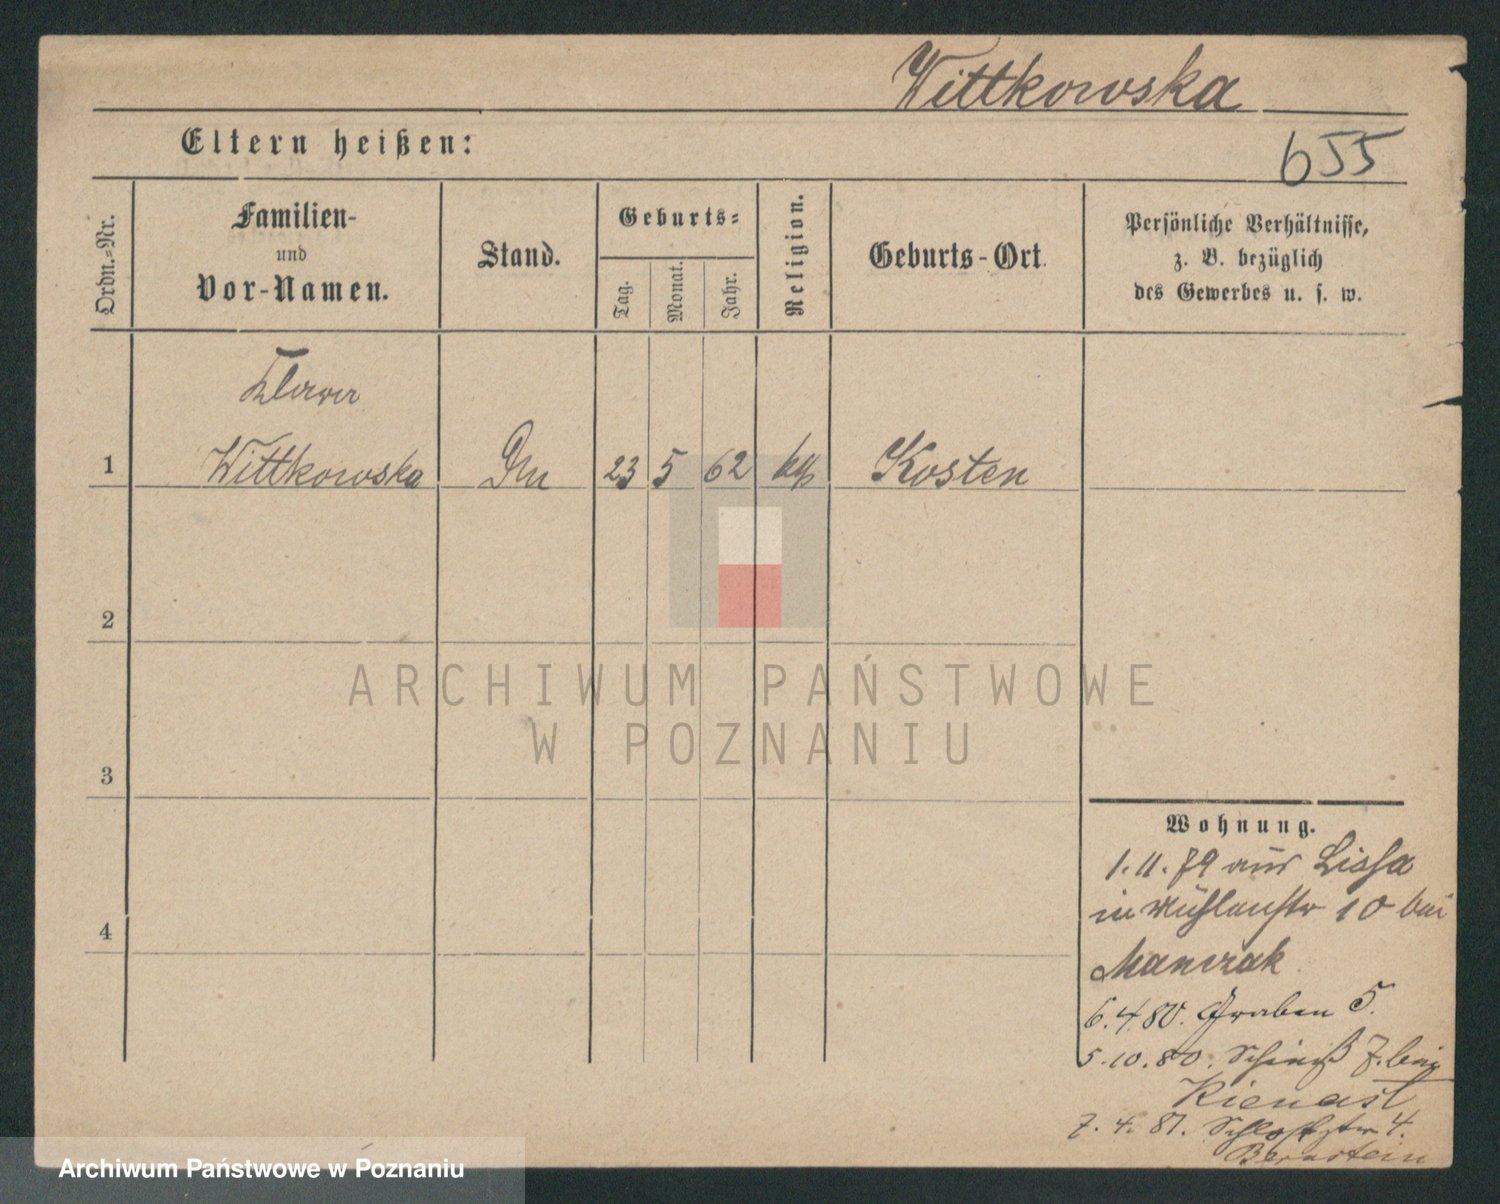 Wittkowska
655
Eltern heißen:
Ordn.=Nr.
Familien-
und
Vor-Namen.
Stand.
Geburts=
Tag.
Monat.
Jahr.
Religion.
Geburts-Ort.
Persönliche Verhältnisse,
z. B. bezüglich
des Gewerbes u. s. w.
1
Wittkowska
23 5 62
Kosten
2
3
4
Wohnung.
1.11.79 aus Lissa
in Mühlenstr 10 bei
Manczak
6.4.80. Graben 5.
5.10.80. 7. bei
Kienast
7. 4. 81. Schloßstr 4.
Bernstein
ARCHIWUM PAŃSTWOWE
W POZNANIU
Archiwum Państwowe w Poznaniu